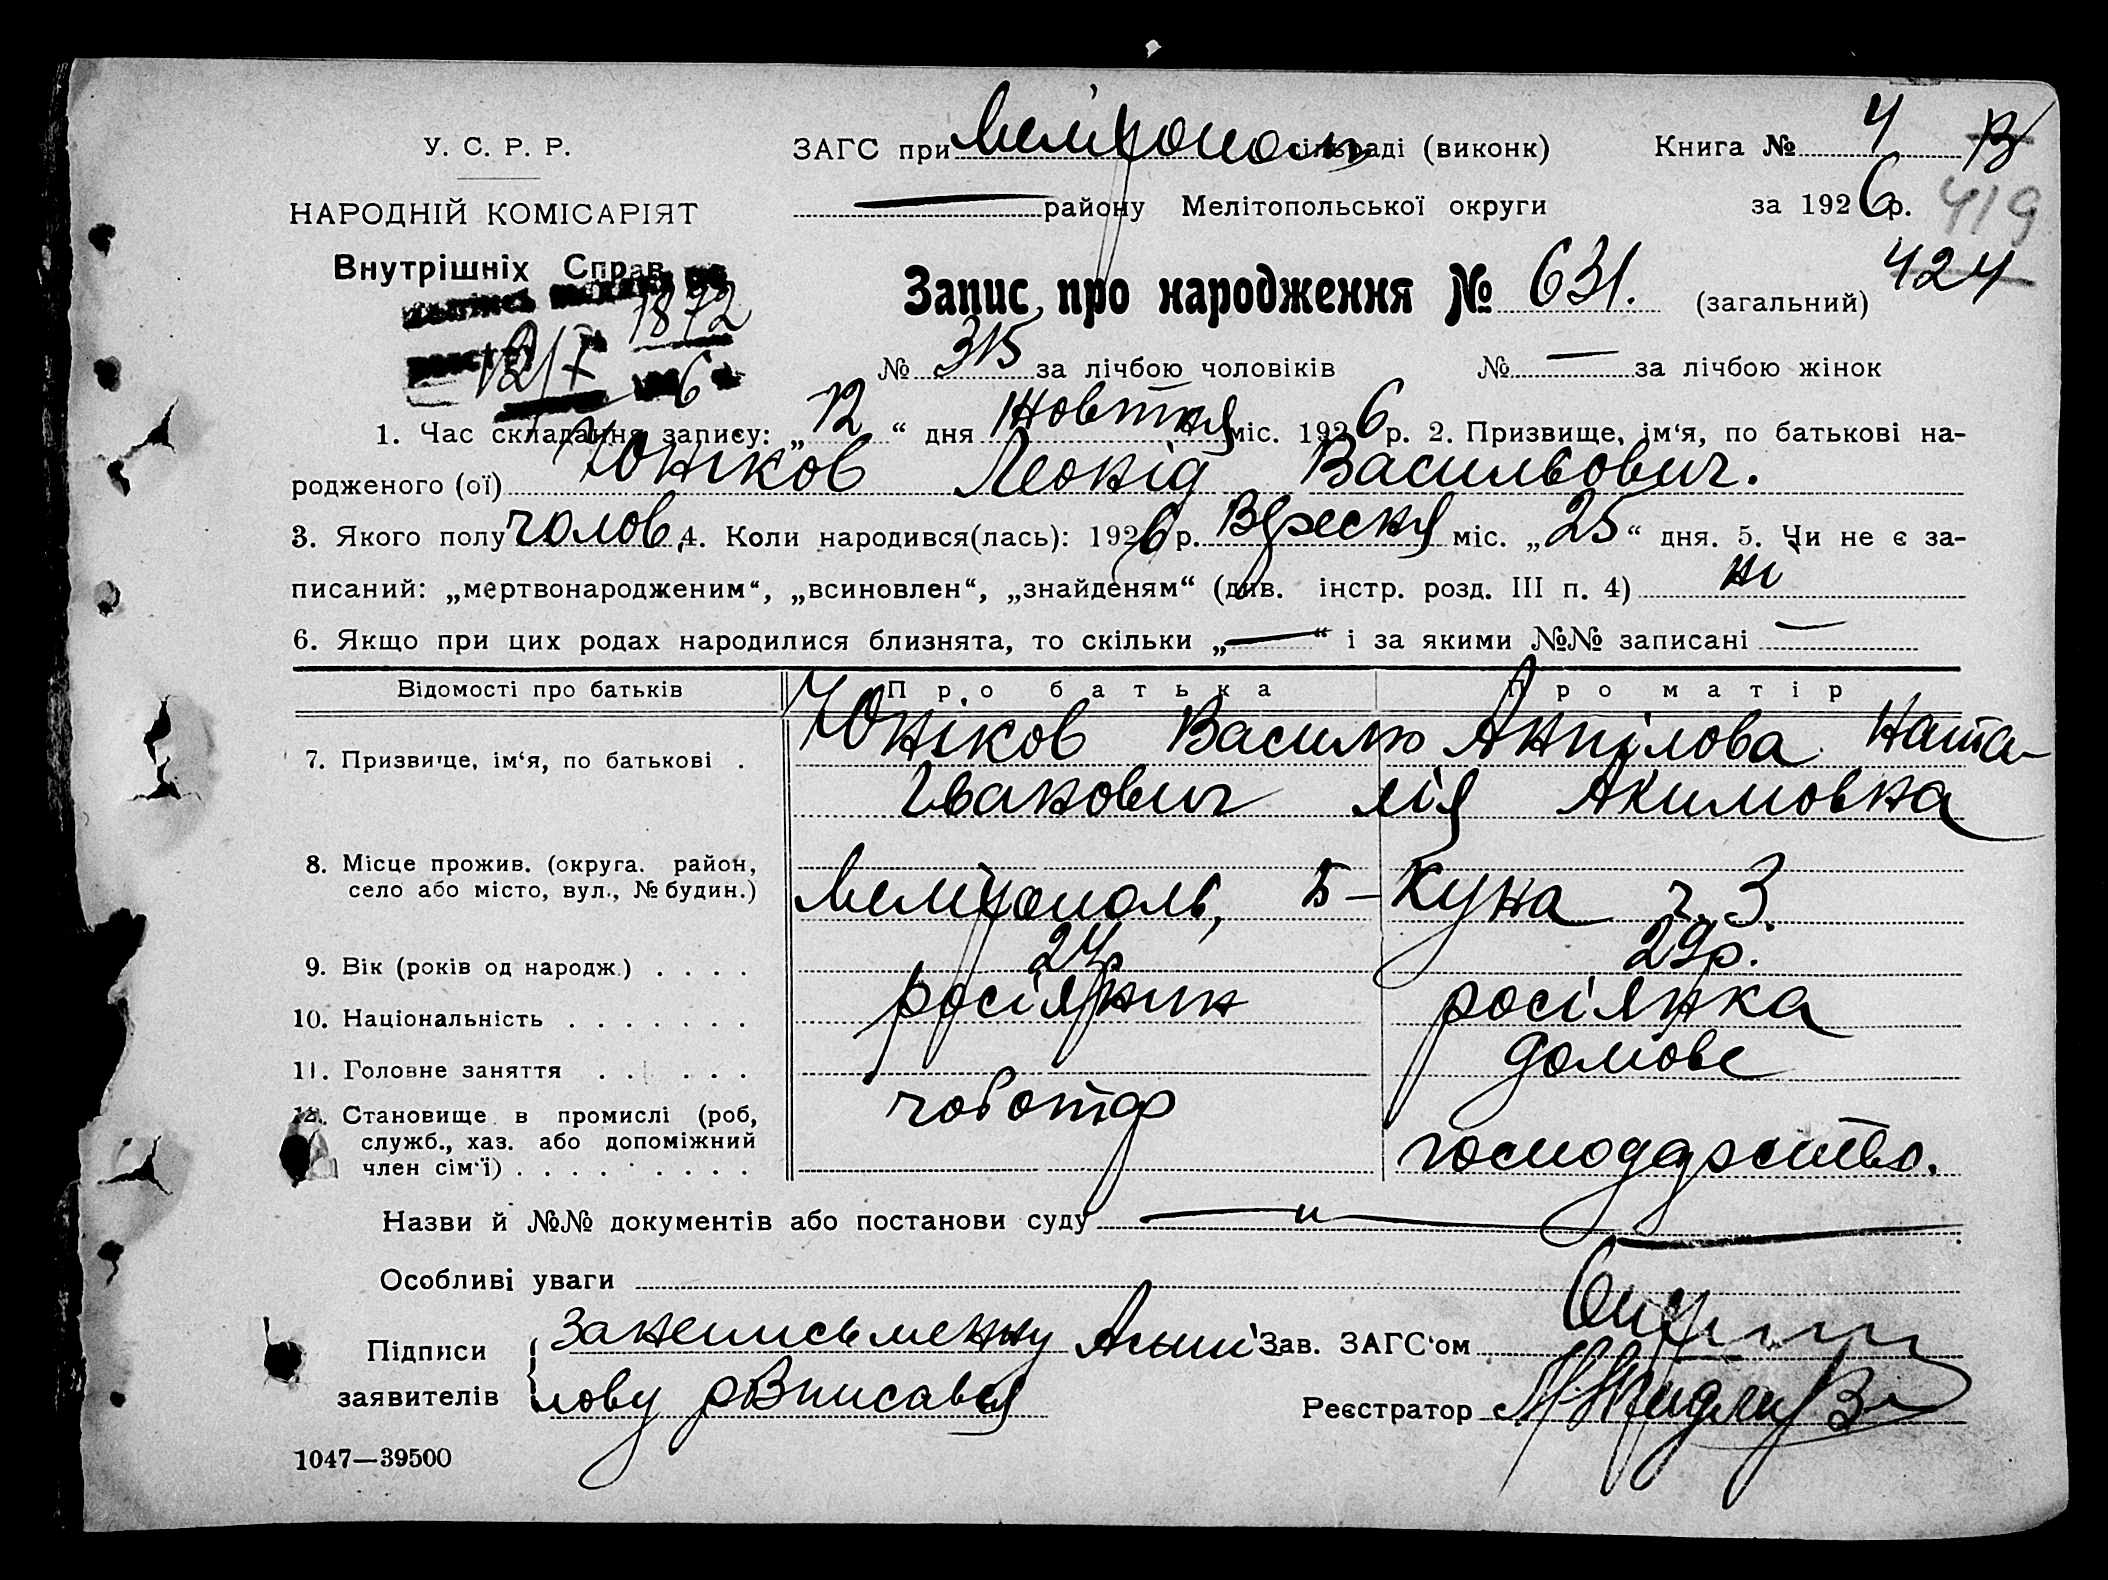 У. С. Р. Р.
ЗАГС при Мелітополь сільраді (виконк)
Книга № 4
НАРОДНІЙ КОМІСАРІЯТ
району Мелітопольської округи
за 1926 р. 419
Внутрішніх Справ
424
Запис про народження № 631. (загальний)
1872
12/X 6
№ 315 за лічбою чоловіків № — за лічбою жінок
1. Час складання запису: „12“ дня Жовтня міс. 1926 р. 2. Призвище, ім‘я, по батькові на-
родженого (ої) Юніков Леонід Васильович.
3. Якого полу чолов. 4. Коли народився(лась): 1926 р. Вересня міс. „25“ дня. 5. Чи не є за-
писаний: „мертвонародженим“, „всиновлен“, „знайденям“ (див. інстр. розд. III п. 4) ні
6. Якщо при цих родах народилися близнята, то скільки „—“ і за якими №№ записані —
Відомості про батьків Про батька Про матір
7. Призвище, ім‘я, по батькові . Юніков Василь Анпілова Ната-
Іванович лія Акимовна
8. Місце прожив. (округа. район,
село або місто, вул., № будин.) Мелітополь, Б-Куна ч. 3.
9. Вік (років од народж.) . . . . 24р 29р.
10. Національність . . . . . . . росіянин росіянка
11. Головне заняття . . . . . . домове
12. Становище в промислі (роб, чоботар
служб., хаз. або допоміжний господарство.
член сім‘ї) . . . . . . . . .
Назви й №№ документів або постанови суду — " —
Особливі уваги
Підписи Занеписьменну Анпі- Зав. ЗАГС‘ом
заявителів лову рВписався Реєстратор
1047—39500